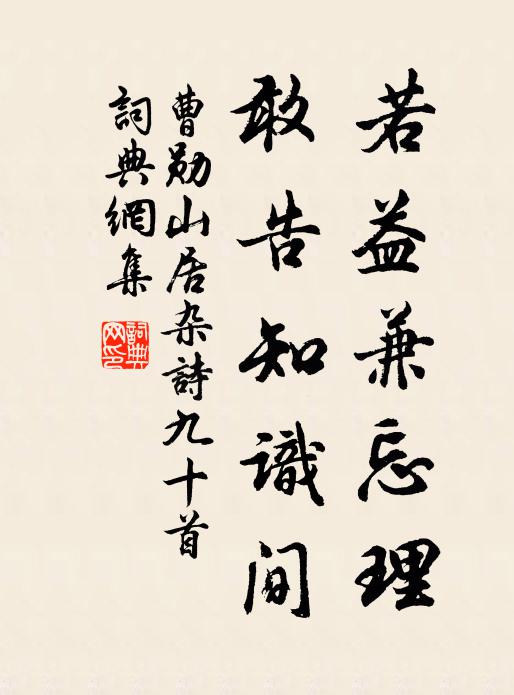 若益兼忘理
敢告知識间
曹勋山居杂詩九十首
詞典網集
詞典网印